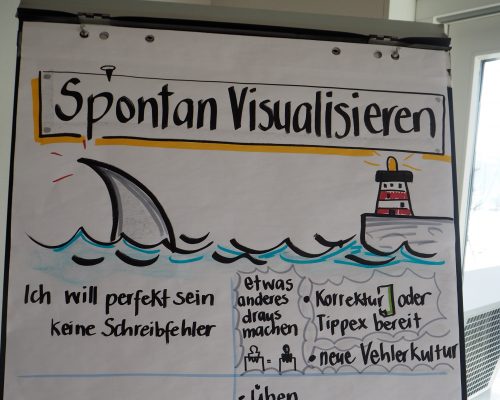 Spontan Visualisieren
Ich will perfekt sein
keine Schreibfehler
etwas
anderes
draus
machen
• Korrektur oder
Tippex bereit
• neue Vehlerkultur
• Üben